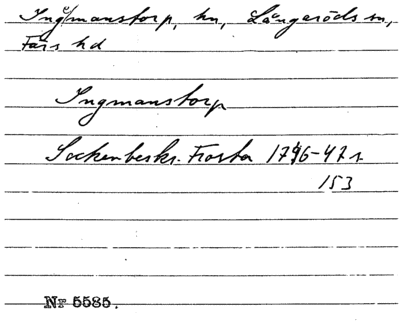 Ingmanstorp, hn, Långaröds sn,
Färs hd
Ingmanstorp
Sockenbeskr. Frosta 1746-47 s
153
Nr 5585.